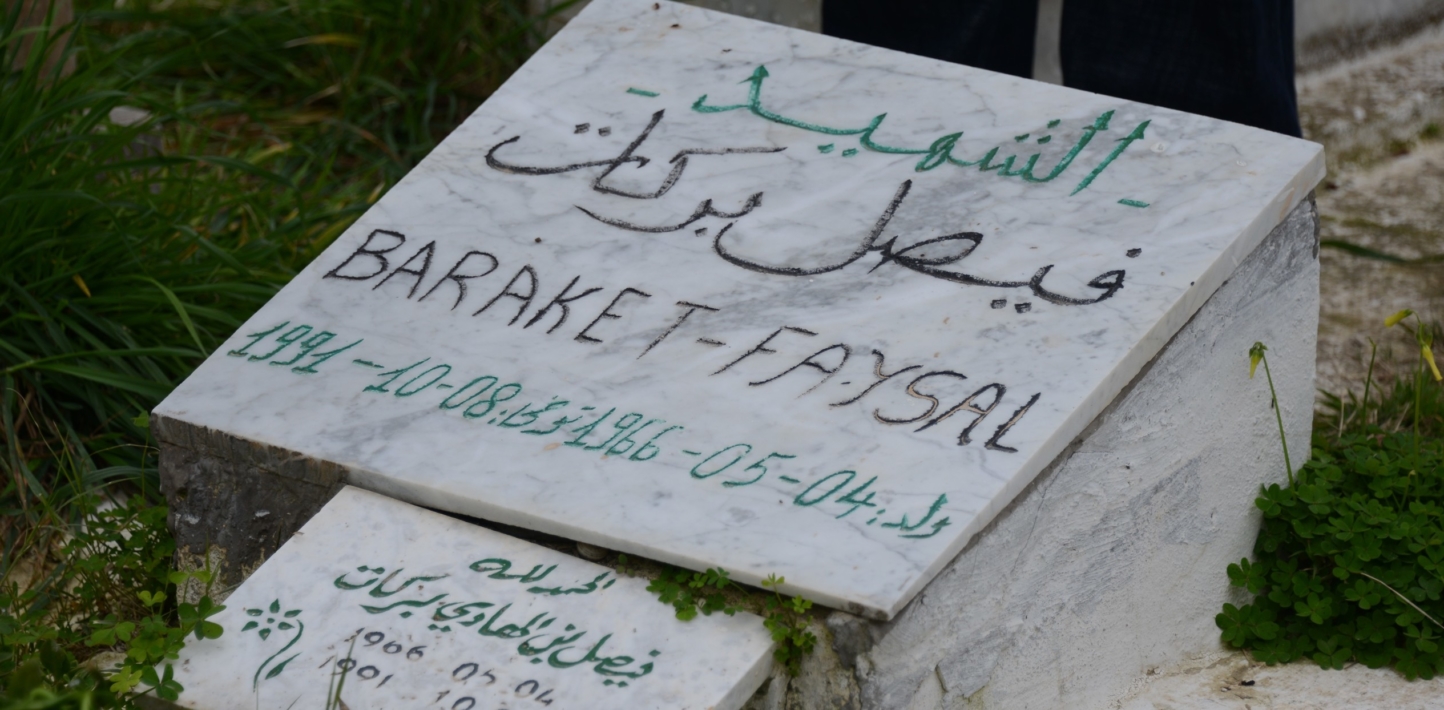 - الشهيد -
فيصل بركات
BARAKET-FAYSAL
ولد: 04-05-1966 توفي: 08-10-1991
الحمد لله
فيصل بن الهادي بركات
1966 05 04
1991 10